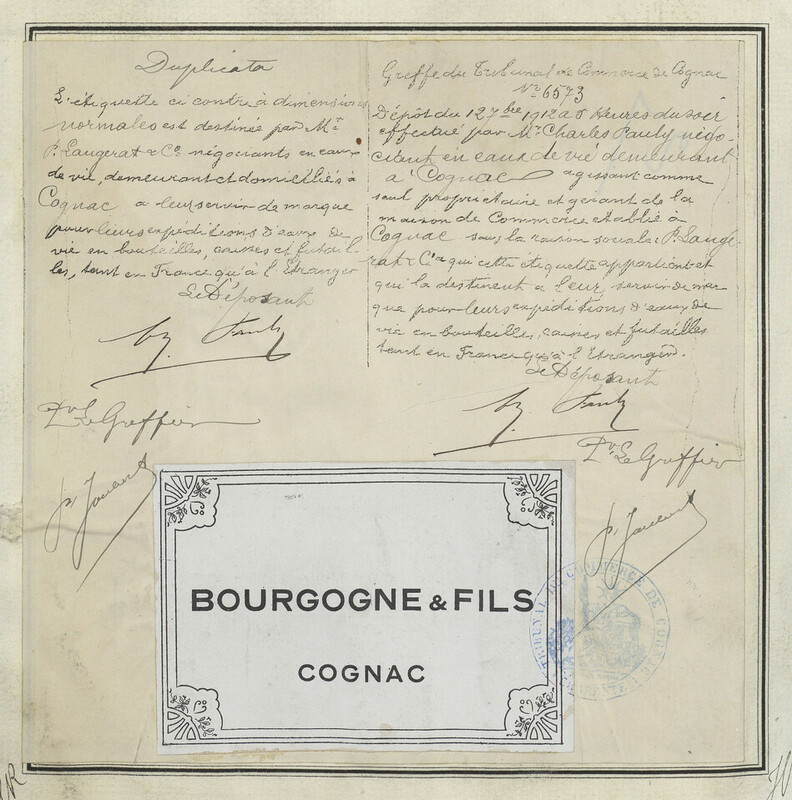 Duplicata
L'étiquette ci contre à dimensions
normales est destinée par Mr
P. Laugerat & Co négociants en eaux
de vie, demeurant et domiciliés à
Cognac à leur servir de marque
pour leurs expéditions d'eaux de
vie en bouteilles, caisses et futail-
les, tant en France qu'à l'Etranger
Le Déposant
Pr Le Greffier
Greffe du Tribunal de Commerce de Cognac
No 6573
Dépôt du 12 7bre 1912 à 5 Heures du soir
effectué par Mr. Charles Pauly négo-
ciant en eaux de vie demeurant
à Cognac agissant comme
seul propriétaire et gérant de la
maison de Commerce établie à
Cognac sous la raison sociale: P. Lauge-
rat & Cie qui cette étiquette appartient et
qui la destinent à leur servir de mar
que pour leurs expéditions d'eaux de
vie en bouteilles, caisses et futailles
tant en France qu'à l'Etranger.
Le Déposant
Pr Le Greffier
BOURGOGNE & FILS
COGNAC
TRIBUNAL DE COMMERCE DE COGNAC